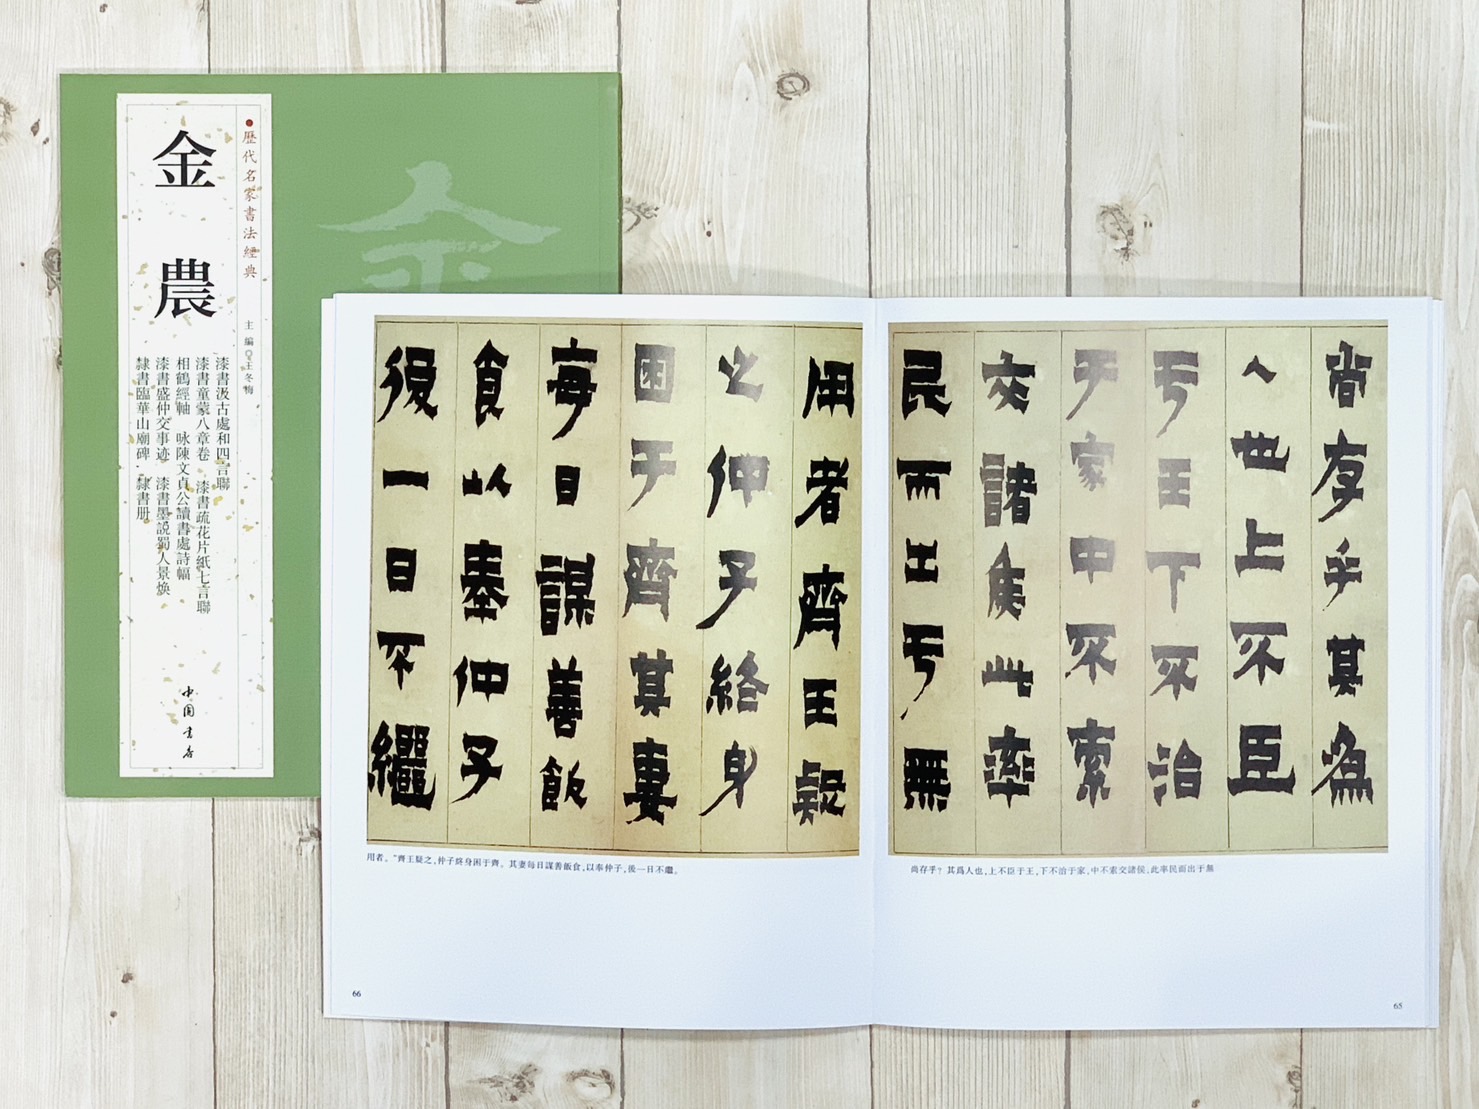 歷代名家書法經典
主編○王冬梅
金農
漆書汲古處和四言聯
漆書童蒙八章卷 漆書疏花片紙七言聯
相鶴經軸 咏陳文貞公讀書處詩幅
漆書盛仲交事迹 漆書墨説蜀人景焕
隸書臨華山廟碑·隸書册
中国书店
金
尚存乎其爲
人也上不臣
于王下不治
于家中不索
交諸侯此率
民而出于無
尚存乎？其爲人也，上不臣于王，下不治于家，中不索交諸侯，此率民而出于無
65
用者齊王疑
之仲子終身
困于齊其妻
每日謀善飯
食以奉仲子
後一日不繼
用者。”齊王疑之，仲子終身困于齊。其妻每日謀善飯食，以奉仲子，後一日不繼。
66